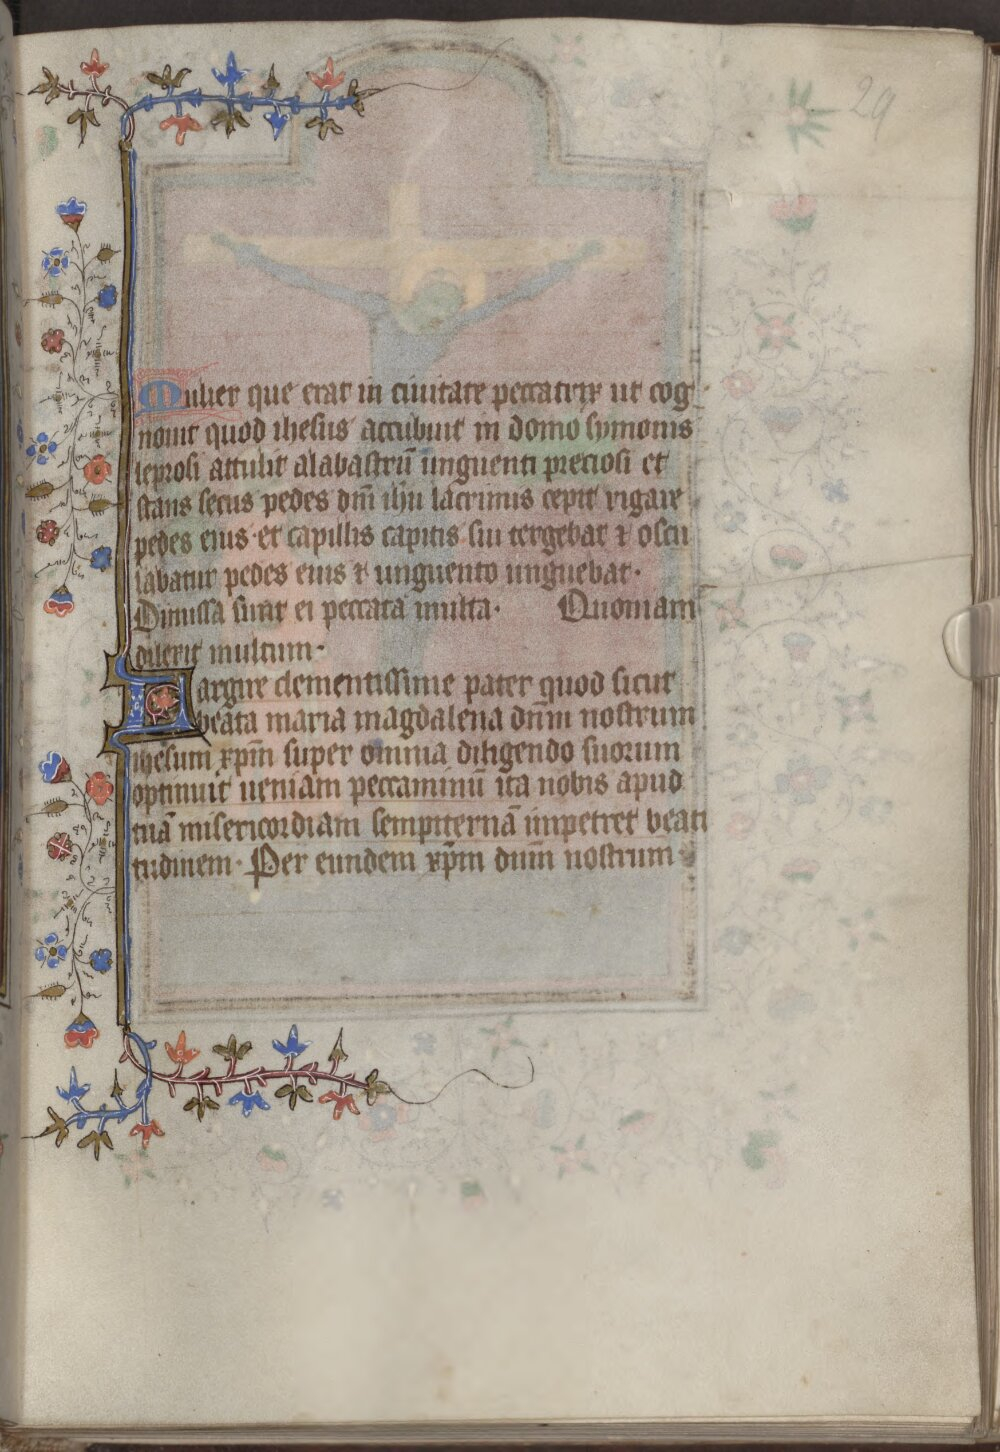 29
Mulier que erat in ciuitate peccatrix ut cog
nouit quod ihesus accubuit in domo symonis
leprosi attulit alabastrū unguenti preciosi et
stans secus pedes dn̄i ihu lacrimis cepit rigare
pedes eius et capillis capitis sui tergebat ⁊ oscu
labatur pedes eius ⁊ unguento unguebat·
Dimissa sunt ei peccata multa· Quoniam
dilexit multum·
Largire clementissime pater quod sicut
beata maria magdalena dn̄m nostrum
ihesum xp̄m super omnia diligendo suorum
optinuit ueniam peccaminū ita nobis apud
tuā misericordiam sempiternā impetret beati
tudinem· Per eundem xp̄m dnm̄ nostrum